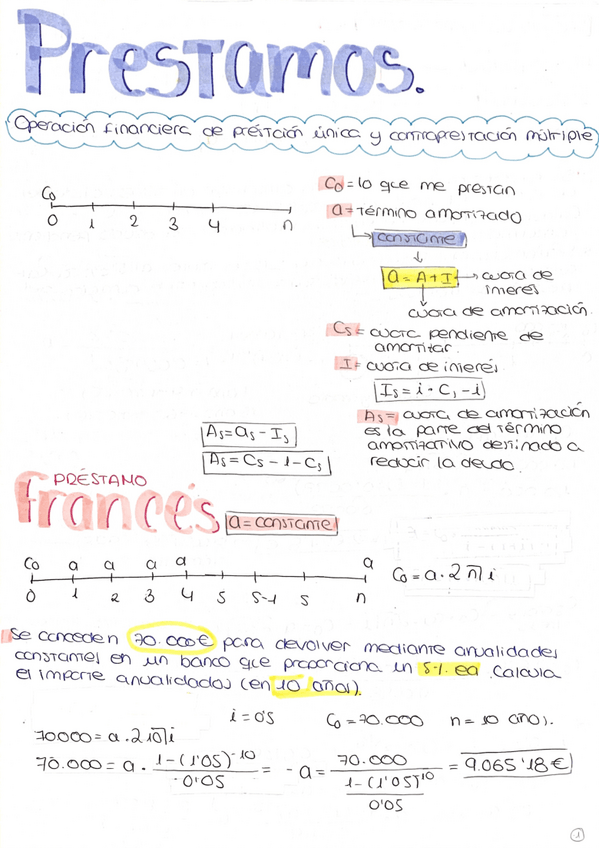 Prestamos.
Operación financiera de préstción única y contraprestación múltiple
C₀ = lo que me prestan
C₀
0 1 2 3 4 n
a = término amortizado
constante
a = A + I → cuota de interés
cuota de amortización
Cs = cuota pendiente de amortizar.
I = cuota de interés
Is = i · Cs - i
As = cuota de amortización
es la parte del término
amortizativo destinado a
reducir la deuda.
As = as - Is
As = Cs - 1 - Cs
PRÉSTAMO
francés
a = constante
C₀ a a a a a
0 1 2 3 4 5 S-1 S n
C₀ = a · 2 n̅| i
Se conceden 70.000€ para devolver mediante anualidades
constantes en un banco que proporciona un 5%. ea. Calcula
el importe anualidados (en 10 años).
i = 0'5 C₀ = 70.000 n = 10 años.
70000 = a · 2 10̅| i
70.000 = a · 1 - (1'05)⁻¹⁰ / 0'05 = - a = 70.000 / 1 - (1'05)¹⁰ / 0'05 = 9.065'18€
1